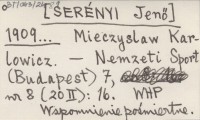 [SERÉNYI Jenő]
1909... Mieczysław Kar-
łowicz. — Nemzeti Sport
(Budapest) 7,
nr 8 (20 II): 16. WHP
Wspomnienie pośmiertne.